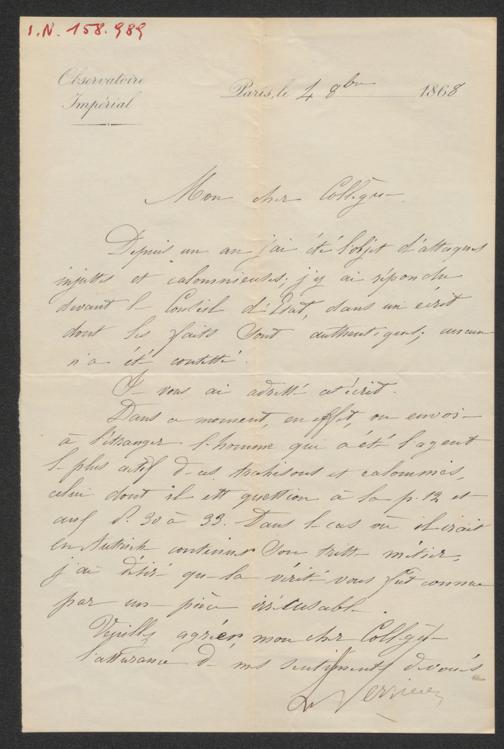 I.N. 158.989
Observatoire
Impérial
Paris, le 4 8bre 1868
Mon cher Collègue
Depuis un an j'ai été l'objet d'attaques
injustes et calomnieuses; j'y ai répondu
devant le Conseil d'État, dans un écrit
dont les faits sont authentiques; aucun
n'a été contesté.
Je vous ai adressé cet écrit.
Dans ce moment, en effet, on envoie
à l'étranger l'homme qui a été l'agent
le plus actif de ces trahisons et calomnies,
celui dont il est question à la p. 12 et
aux p. 30 à 33. Dans le cas où il irait
en Autriche continuer son triste métier,
j'ai désiré que la vérité vous fût connue
par une pièce irrécusable.
Veuillez agréer, mon cher Collègue
l'assurance de mes sentiments dévoués
Le Verrier